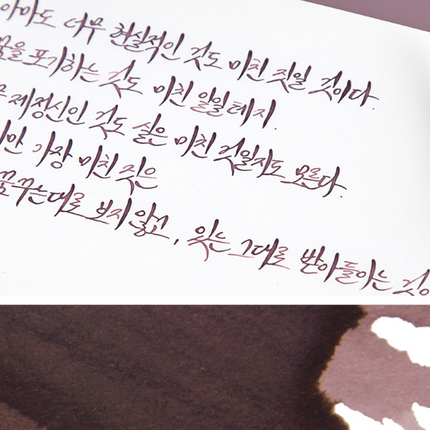 아마도 너무 현실적인 것도 미친 짓일 것이다.
꿈을 포기하는 것도 미친 일일테지.
제정신인 것도 실은 미친 것일지도 모른다.
가장 미친 짓은
꿈꾸는대로 보지않고, 있는 그대로 받아들이는 것